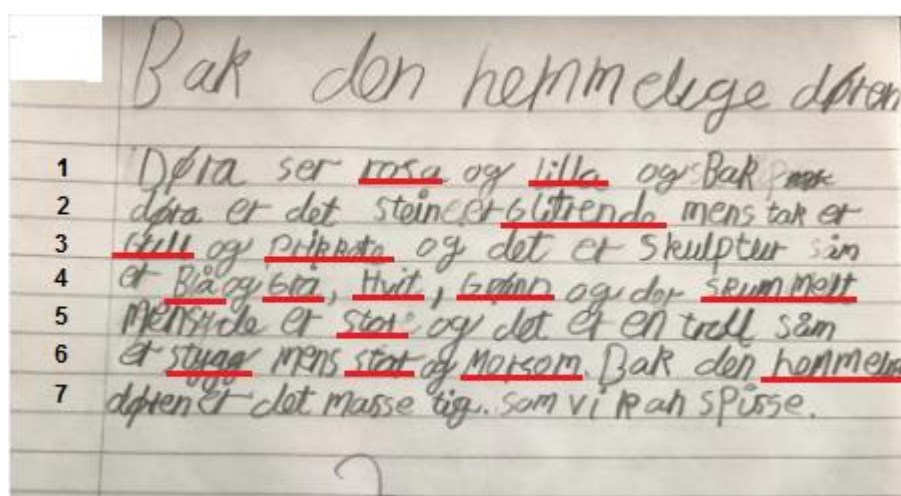 Bak den hemmelige døren
1 Døra ser rosa og lilla og Bak
2 døra er det steiner Glitrende mens tak er
3 og prikkete og det er skulptur såm
4 er Blå og Grå, Hvit, Grønn og der skummelt
5 mens de er stor og det er en troll såm
6 er stygg mens stor og Morsom. Bak den hemmelige
7 døren er det masse tig. som vi kan spisse.